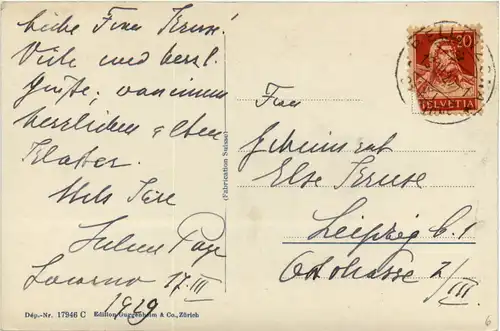 Liebe Frau Kruse!
Viele und herzl.
Grüße, von einem
herzlichen alten
Stets Ihre
Locarno 17. III
1929
Dép.-Nr. 17946 C Edition Guggenheim & Co., Zürich
(Fabrication Suisse)
20
HELVETIA
Frau
Geheimrat
Else Kruse
Leipzig C. 1
Oststrasse 2/
III
6